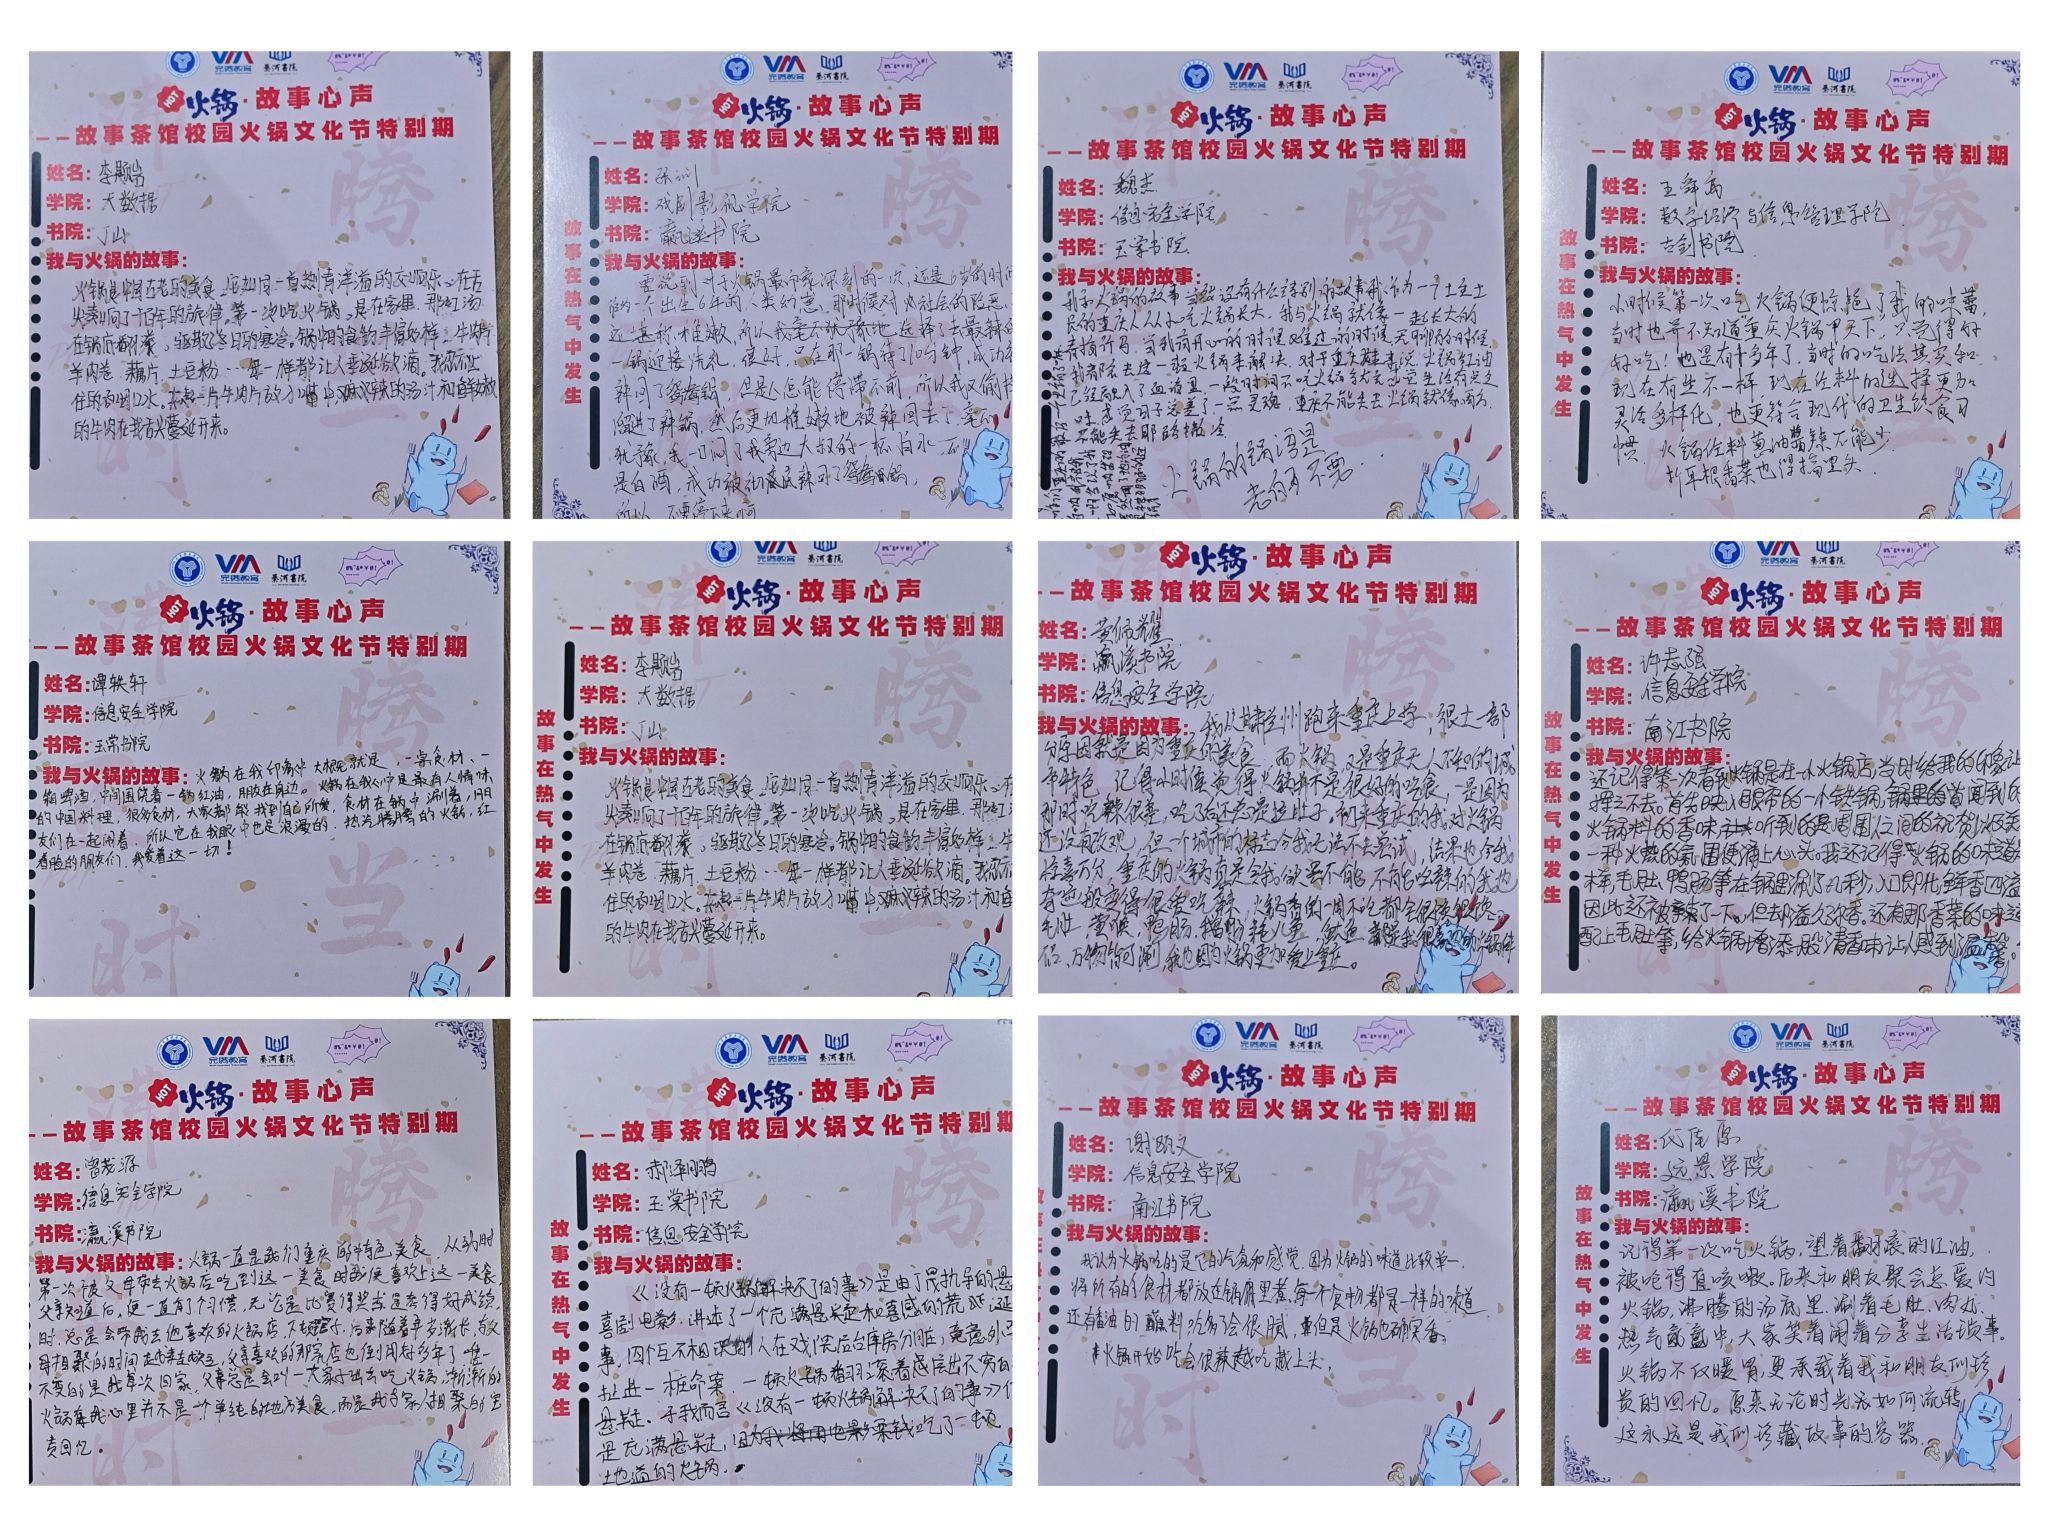 完美教育
綦河書院
HOT 火锅·故事心声
——故事茶馆校园火锅文化节特别期
姓名:李颙岩
学院:大数据
书院:J山
我与火锅的故事:
火锅是中国古老的美食,宛如同一首热情洋溢的交响乐,在舌
尖奏响了千百年的旋律。第一次吃火锅,是在家里,那红汤
在锅底翻滚,驱散冬日的寒冷。锅中的食物丰富多样:牛肉片
羊肉卷、藕片、土豆粉……每一样都让人垂涎欲滴。我忍不
住的夹一片牛肉片放入嘴中,麻辣的汤汁和鲜嫩
的牛肉在我舌尖蔓延开来。
完美教育
綦河書院
HOT 火锅·故事心声
——故事茶馆校园火锅文化节特别期
故事在热气中发生
姓名:
学院:戏剧影视学院
书院:瀛溪书院
我与火锅的故事:
要说到对于火锅最印象深刻的一次,还是6岁的时候
的一个出生6年的人类幼崽,那时候对火社会的险恶
还甚称稚嫩,所以我毫不犹豫地选择了去最辣的
一锅迎接洗礼,很好,只在那一锅待了10分钟,成功被
辣回了鸳鸯锅,但是人怎能停滞不前,所以我又偷偷
溜进了辣锅,然后更加稚嫩地被辣回去了,毫不
犹豫,我一口闷了我旁边大叔的一杯白水,
是白酒,成功被彻底辣回了鸳鸯锅,
所以,不要停下来啊
完美教育
綦河書院
HOT 火锅·故事心声
——故事茶馆校园火锅文化节特别期
姓名:魏杰
学院:信息安全学院
书院:玉棠书院
我与火锅的故事:
我和火锅的故事当然没有什么特别的故事,我作为一个土生土
长的重庆人从小吃火锅长大,我与火锅就像一起长大的
当我开心的时候难过的时候无聊的时候
我都能去这一般火锅来解决,对于重庆
已经融入了血液里,一段时间不吃火锅
重庆不能失去火锅就像西方
不能失去耶路撒冷
完美教育
綦河書院
HOT 火锅·故事心声
——故事茶馆校园火锅文化节特别期
故事在热气中发生
姓名:王舜禹
学院:数字经济与信息管理学院
书院:古剑书院
我与火锅的故事:
小时候第一次吃火锅便惊艳了我的味蕾,
当时也早不知道重庆火锅甲天下,只觉得好
好吃!也还有十多年了,当时的吃法其实和
现在有些不一样,现在佐料的选择更加
灵活多样化,也更符合现代的卫生饮食习
惯。火锅佐料葱油酱辣不能少
折耳根香菜也得搞里头
完美教育
綦河書院
HOT 火锅·故事心声
——故事茶馆校园火锅文化节特别期
姓名:谭轶轩
学院:信息安全学院
书院:玉棠书院
我与火锅的故事:火锅在我印象中大概就是,一桌食材、一
箱啤酒,中间围绕着一锅红油,朋友在身边。火锅在我心中是最有人情味
的中国料理,很多食材,大家都能找到自己所爱,食材在锅中涮着,朋
友们在一起闹着,所以它在我眼中也是浪漫的,热气腾腾的火锅,红
着脸的朋友们,我爱着这一切!
綦河書院
HOT 火锅·故事心声
——故事茶馆校园火锅文化节特别期
故事在热气中发生
姓名:李颙岩
学院:大数据
书院:J山
我与火锅的故事:
火锅是中国古老的美食,宛如同一首热情洋溢的交响乐,在
尖奏响了千百年的旋律。第一次吃火锅,是在家里,那红汤
在锅底翻滚,驱散冬日的寒冷。锅中的食物丰富多样:牛
羊肉卷、藕片、土豆粉……每一样都让人垂涎欲滴。我忍不
住的夹一片牛肉片放入嘴中,麻辣的汤汁和鲜
的牛肉在我舌尖蔓延开来。
HOT 火锅·故事心声
——故事茶馆校园火锅文化节特别期
姓名:黄佩耀
学院:瀛溪书院
书院:信息安全学院
我与火锅的故事:我从甘肃兰州跑来重庆上学,很大一部
分原因就是因为重庆的美食,而火锅又是重庆无人不知的城
市特色,记得小时候觉得火锅并不是很好的吃食,一是因为
那时吃辣很差,吃了后还总是拉肚子。初来重庆的我,对火锅
还没有改观,但一个城市的标志令我无法不去尝试,结果也令我
惊喜万分,重庆的火锅真是令我欲罢不能,不能吃辣的我也
在这一般变得很爱吃辣,火锅香的一周不吃都会很想很馋。
毛肚、黄喉、鸭肠
品,万物皆可涮,我也因为火锅更加爱上重庆。
綦河書院
HOT 火锅·故事心声
——故事茶馆校园火锅文化节特别期
故事在热气中发生
姓名:许志强
学院:信息安全学院
书院:南江书院
我与火锅的故事:
还记得第一次看到火锅是在一小火锅店,当时给我的印象让
挥之不去。首先映入眼帘的一个铁锅,锅里的首闻到的
火锅料的香味,听到的是周围人间的祝贺以及美
一种火热的氛围便涌上心头。我还记得火锅的味道
样毛肚、鸭肠等在锅里涮了几秒,入口即化鲜香四溢
因此还被辣了一下。但却益久弥香。还有那香菜的味道
配上毛肚等,给火锅增添一股清香味让人感到温馨。
完美教育
綦河書院
HOT 火锅·故事心声
——故事茶馆校园火锅文化节特别期
姓名:曾龙源
学院:信息安全学院
书院:瀛溪书院
我与火锅的故事:火锅一直是我们重庆的特色美食,从幼时
第一次被父母带去火锅店吃到这一美食时我便喜欢上这一美食,
父亲知道后,便一直有个习惯,无论是比赛得奖或是考得好成绩
时,总是会带我去他喜欢的火锅店,后来随着年岁渐长,与父
母相聚的时间越来越少,父亲喜欢的那家店也倒闭好多年了,唯一
不变的是我每次回家,父亲总是会叫一大家子出去吃火锅,渐渐的
火锅在我心里并不是一个单纯的地方美食,而是我与家人相聚的宝
贵回忆。
完美教育
綦河書院
HOT 火锅·故事心声
——故事茶馆校园火锅文化节特别期
故事在热气中发生
姓名:郝泽鹏
学院:玉棠书院
书院:信息安全学院
我与火锅的故事:
《没有一顿火锅解决不了的事》是由丁晟执导的悬
喜剧电影,讲述了一个充满悬疑和喜感的荒
事,四个互不相识的人在戏院后台库房分赃,竟意外
扯进一桩命案,一顿火锅
悬疑。于我而言《没有一顿火锅解决不了的事》
是充满悬疑,因为我将用电影票钱吃了一顿
地道的火锅。
完美教育
綦河書院
HOT 火锅·故事心声
——故事茶馆校园火锅文化节特别期
姓名:谢
学院:信息安全学院
书院:南江书院
我与火锅的故事:
我认为火锅吃的是它的气氛和感觉,因为火锅的味道比较单一,
将所有的食材都放在锅底里煮,每个食物都是一样的味道
还有香油的蘸料,吃多了会很腻,但是火锅也确实香。
火锅开始吃会很辣越吃越上头。
完美教育
綦河書院
HOT 火锅·故事心声
——故事茶馆校园火锅文化节特别期
故事在热气中发生
姓名:
学院:远景学院
书院:瀛溪书院
我与火锅的故事:
记得第一次吃火锅,望着翻滚的红油,
被呛得直咳嗽。后来和朋友聚会总爱约
火锅,沸腾的汤底里,涮着毛肚、肉片,
热气氤氲中,大家笑着闹着分享生活琐事。
火锅不仅暖胃,更承载着我和朋友们珍
贵的回忆。原来无论时光如何流转
这永远是我们珍藏故事的容器